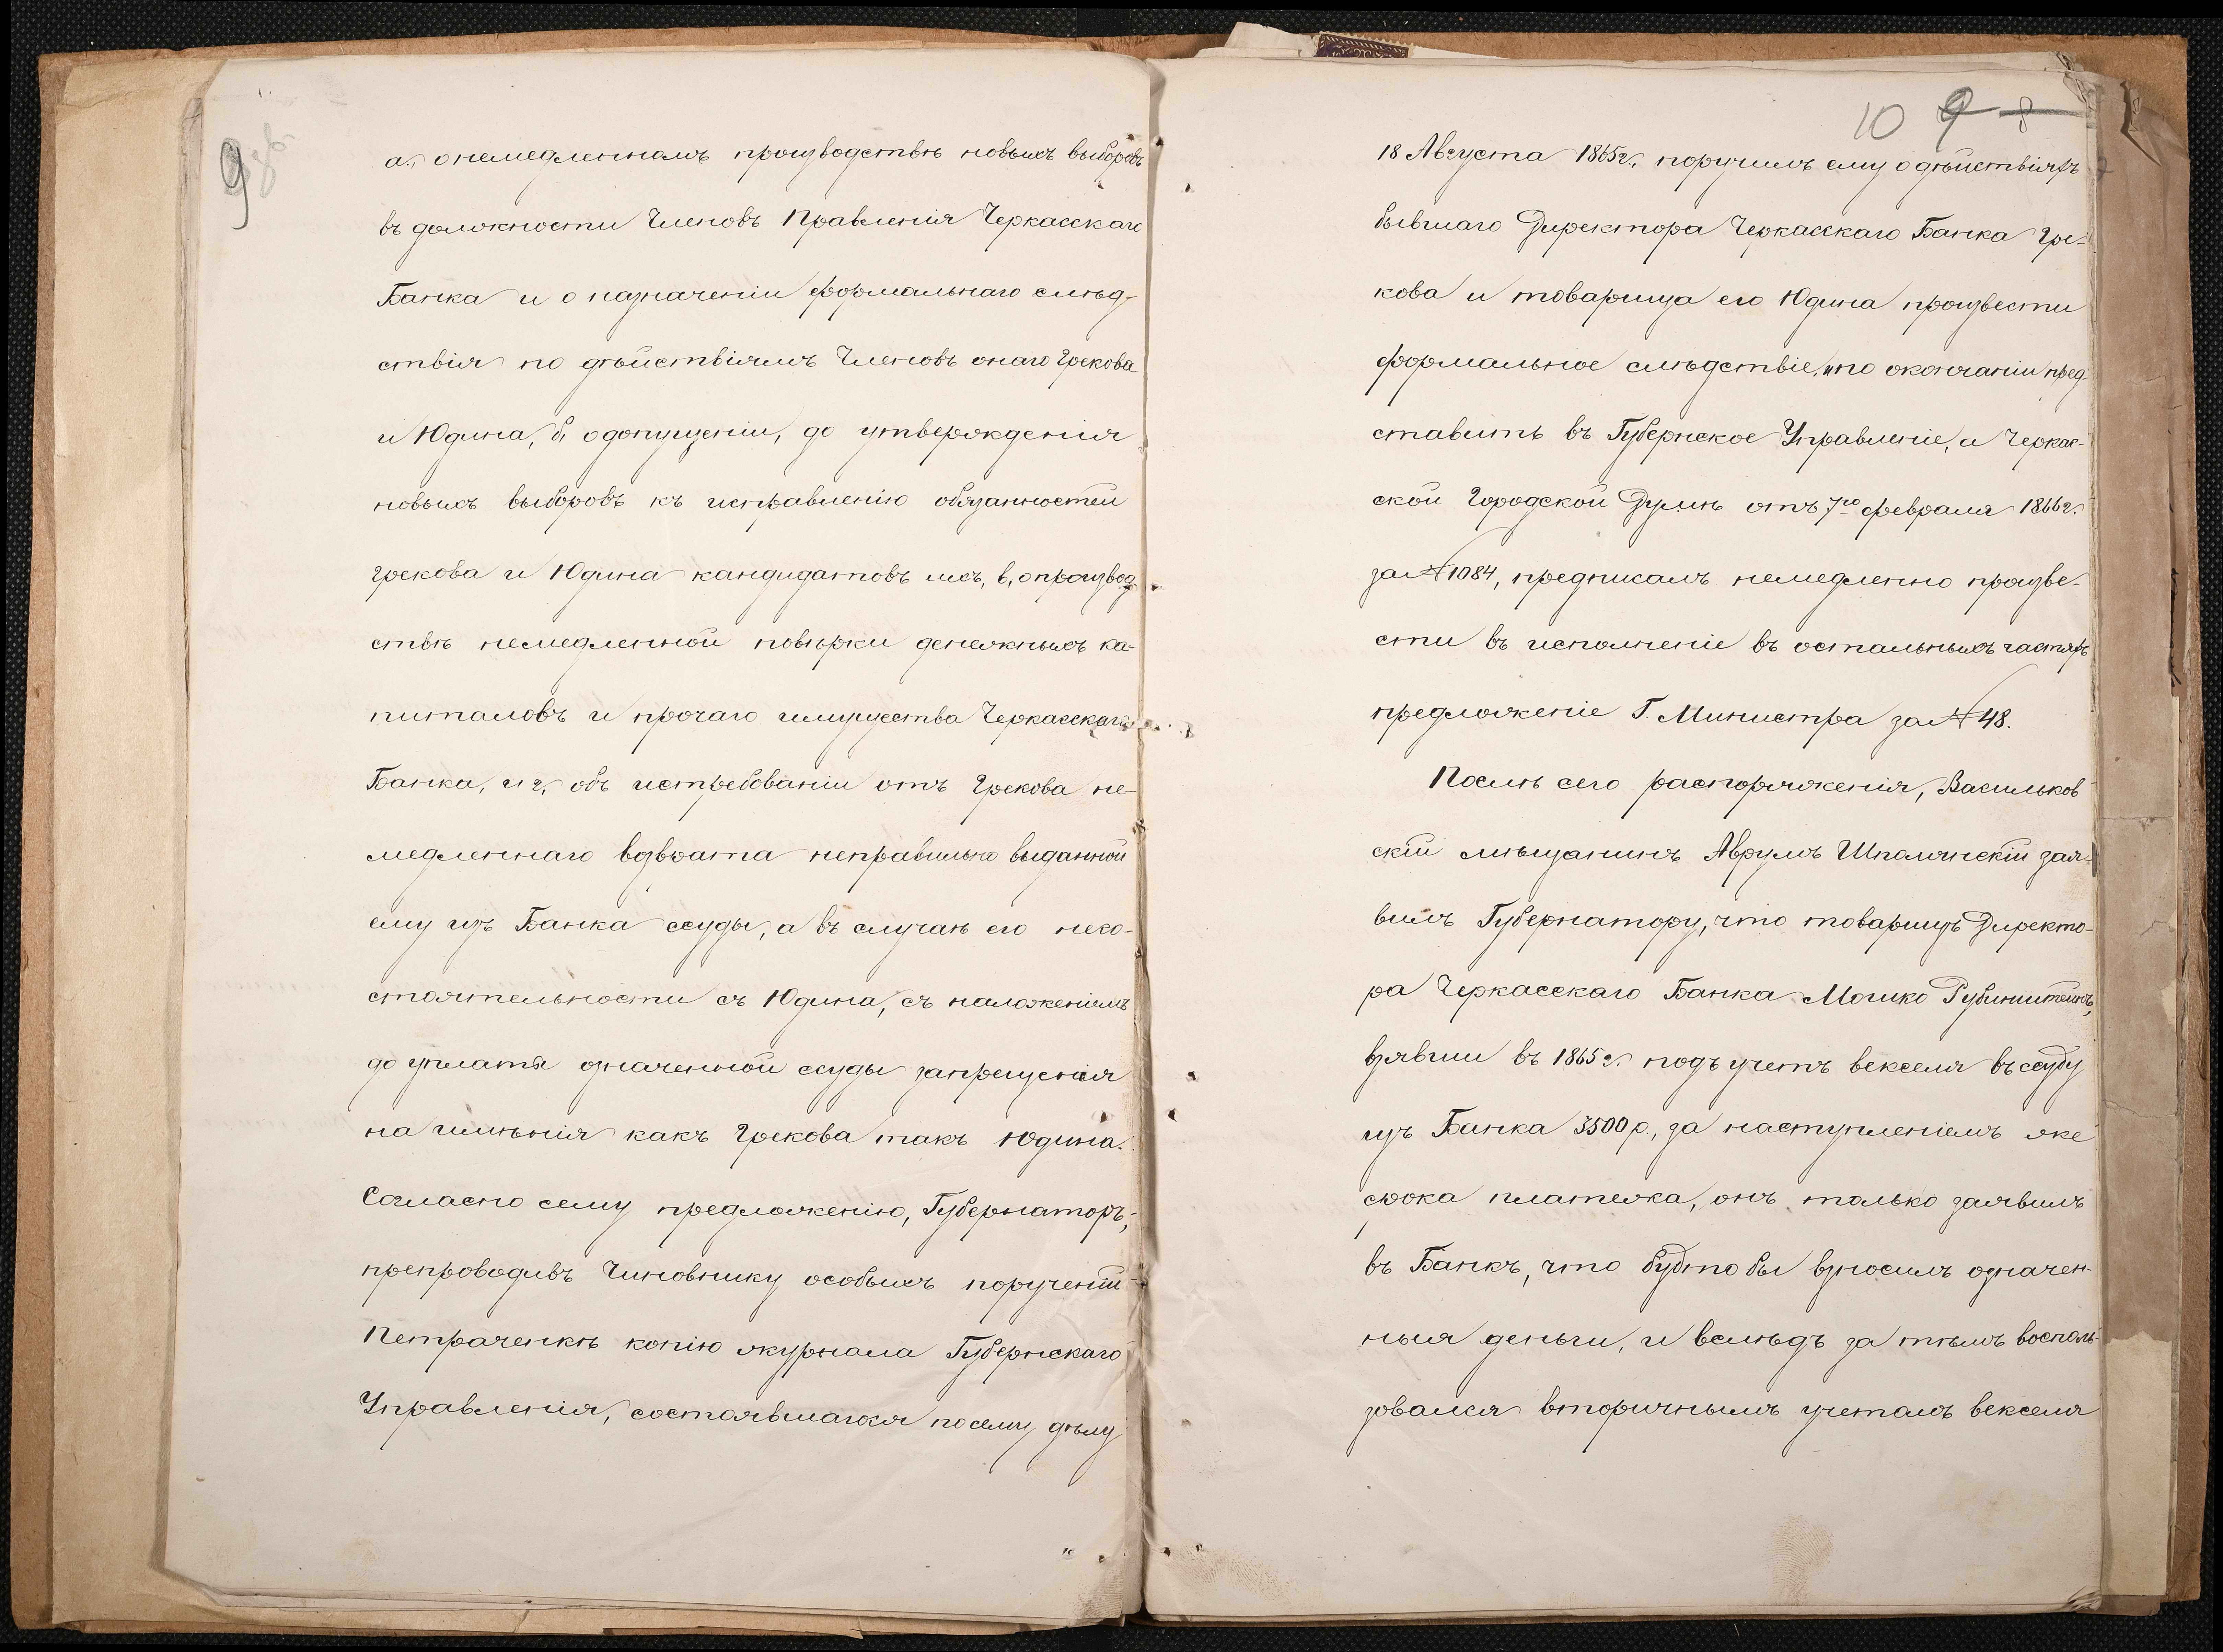 9
а., о немедленномъ производствѣ новыхъ выборовъ
въ должности Членовъ Правленія Черкасскаго
Банка и о назначеніи формальнаго слѣд-
ствія по дѣйствіямъ Членовъ онаго Грекова
и Юдина, б, о допущеніи, до утвержденія
новыхъ выборовъ къ исправленію обязанностей
Грекова и Юдина кандидатовъ ихъ, в, о производ-
ствѣ немедленной повѣрки денежныхъ ка-
питаловъ и прочаго имущества Черкасскаго
Банка, и г, объ истребованіи отъ Грекова не-
медленнаго возврата неправильно выданной
ему изъ Банка ссуды, а въ случаѣ его несо-
стоятельности съ Юдина, съ наложеніемъ
до уплаты означенной ссуды запрещенія
на имѣнія какъ Грекова такъ Юдина.
Согласно сему предложенію, Губернаторъ,
препроводивъ Чиновнику особыхъ порученій
Петраченкѣ копію журнала Губернскаго
Управленія, состоявшагося по сему дѣлу
10 9 8
18 Августа 1865г., поручилъ ему о дѣйствіяхъ
бывшаго Директора Черкасскаго Банка Гре-
кова и товарища его Юдина произвести
формальное слѣдствіе, и по окончаніи пред-
ставить въ Губернское Управленіе, а Черкас-
ской Городской Думѣ отъ 7го февраля 1866г.
за № 1084, предписалъ немедленно произве-
сти въ исполненіе въ остальныхъ частяхъ
предложеніе Г. Министра за № 48.
Послѣ сего распоряженія, Васильков
скій мѣщанинъ Аврумъ Шполянскій зая-
вилъ Губернатору, что товарищъ Директо-
ра Черкасскаго Банка Мошко Рубинштейнъ,
взявши въ 1865г. подъ учетъ векселя въ ссуду
изъ Банка 3500 р., за наступленіемъ же
срока платежа, онъ только заявилъ
въ Банкъ, что будто бы взносилъ означен-
ныя деньги, и вслѣдъ за тѣмъ восполь-
зовался вторичнымъ учетомъ векселя